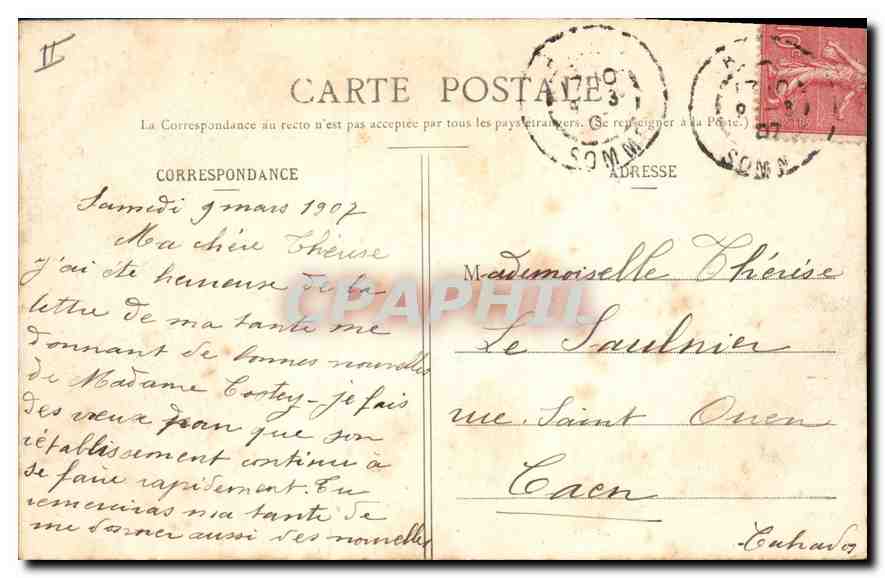 II
CARTE POSTALE
La Correspondance au recto n'est pas acceptée par tous les pays étrangers. (Se renseigner à la Poste.)
CORRESPONDANCE
Samedi 9 mars 1907
Ma chère Thérèse
j'ai été heureuse de la
lettre de ma tante me
donnant de bonnes nouvelles
de Madame - je fais
des vœux pour que son
rétablissement continu à
se faire rapidement. Tu
remercieras ma tante de
me donner aussi des nouvelles
ADRESSE
Mademoiselle Thérèse
Le Saulnier
rue Saint Ouen
Caen
Calvados
17 10
9 3
SOMME
9 3
07
SOMM
CPAPHIL